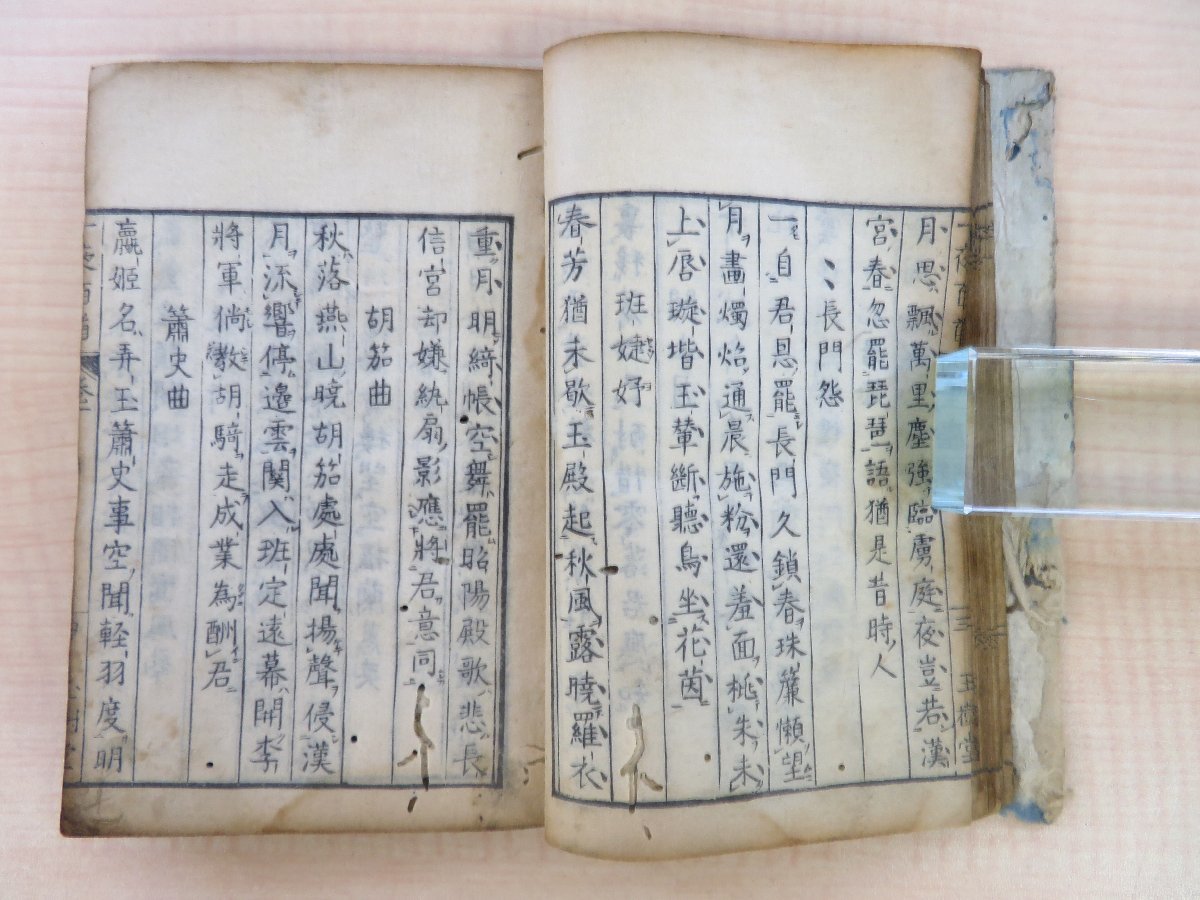 月思飄萬里塵強臨虜庭夜豈若漢
宮春忽罷琵琶語猶是昔時人
〻長門怨
一自君恩罷長門久鎖春珠簾懶望
月畫燭焰通晨施粉還羞面桃朱未
上唇璇堦玉輦斷聽鳥坐花茵
班婕妤
春芳猶未歇玉殿起秋風露曉羅衣
重月明綺帳空舞罷昭陽殿歌悲長
信宮却嫌紈扇影應將君意同
胡笳曲
秋落燕山曉胡笳處處聞揚聲侵漢
月流響停邊雲関入班定遠幕開李
將軍倘教胡騎走成業為酬君
簫史曲
嬴姬名弄玉簫史事空聞輕羽度明
一夜百首
三
玉樹堂